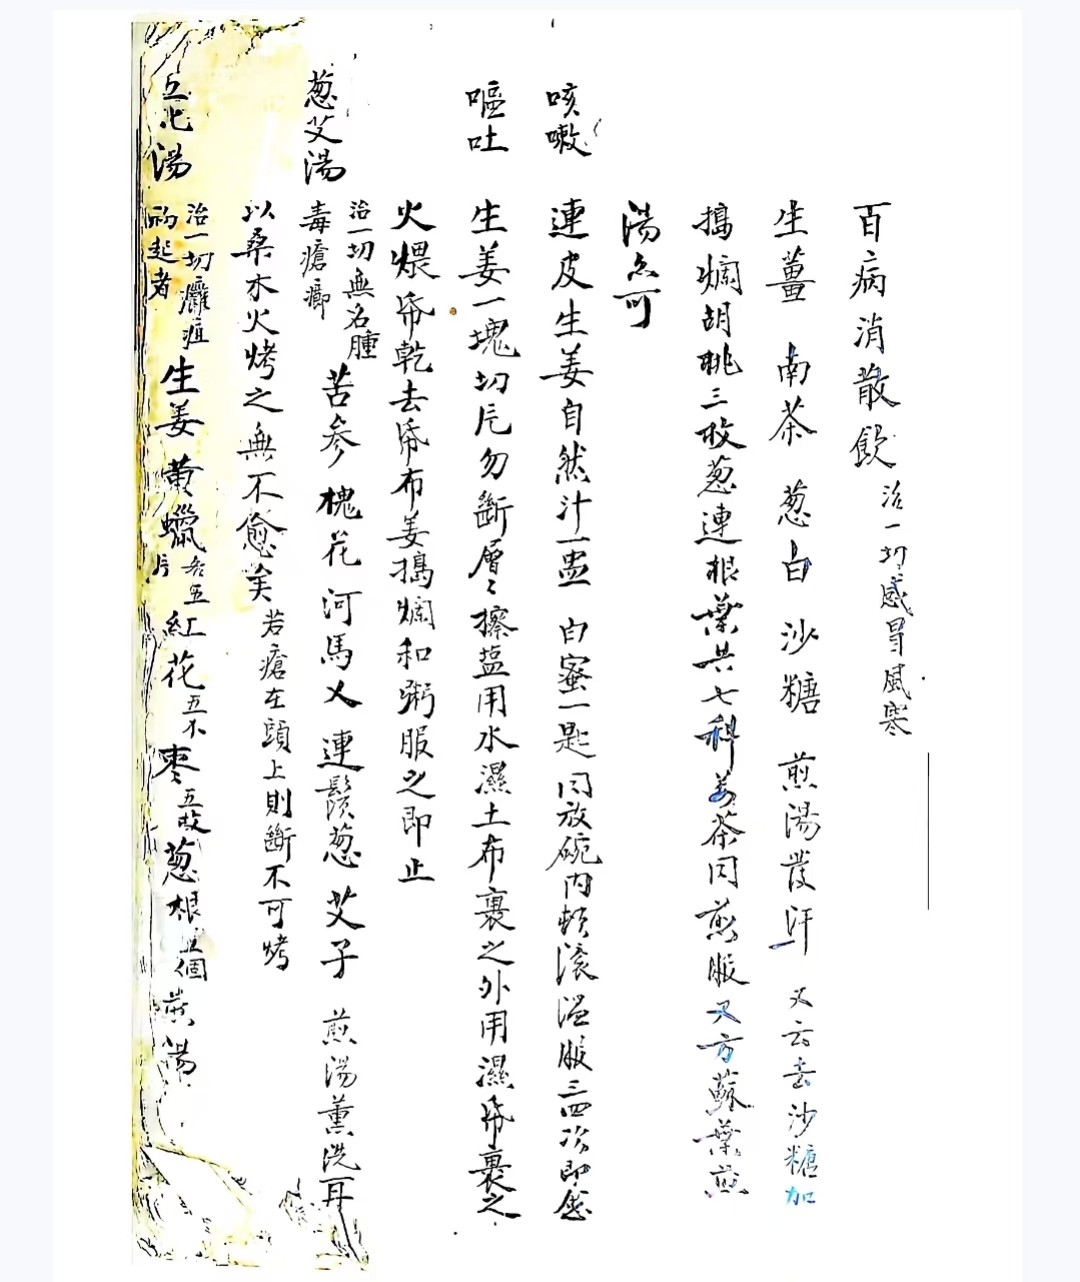 百病消散飲 治一切感冒風寒
生薑 南茶 葱白 沙糖 煎湯發汗 又云去沙糖加
搗爛胡桃三枚葱連根葉共七科姜茶同煎服又方蘇葉煎
湯亦可
咳嗽 連皮生姜自然汁一盅 白蜜一匙同放碗内頓滚溫服三四次即愈
嘔吐 生姜一塊切片勿斷層々擦塩用水濕土布裹之外用濕帋裹之
火煨帋乾去帋布姜搗爛和粥服之即止
葱艾湯 治一切無名腫
毒瘡瘤 苦参 槐花 河馬乂 連鬚葱 艾子 煎湯薰洗再
以桑木火烤之無不愈矣 若瘡在頭上則斷不可烤
五化湯 治一切癰疽
初起者 生姜五片 黄蠟五 紅花五 枣五枚 葱根五個 煎湯